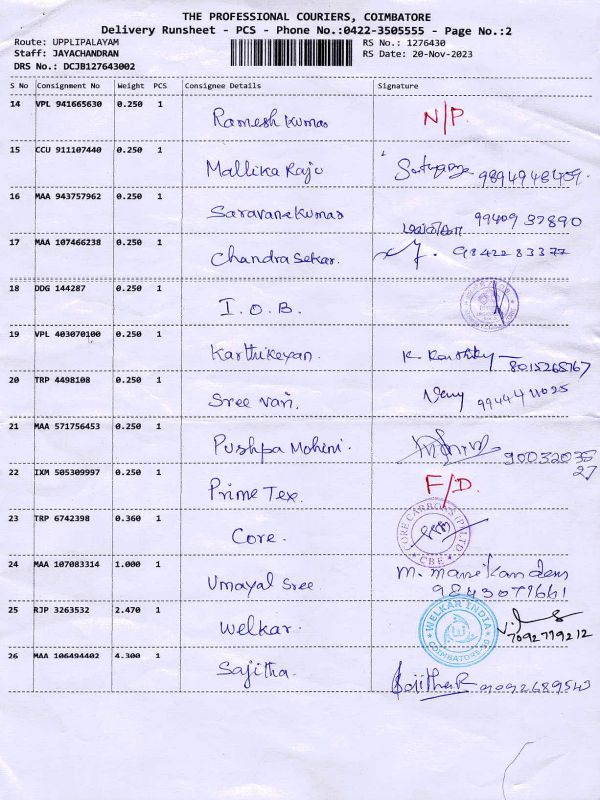 THE PROFESSIONAL COURIERS, COIMBATORE
Delivery Runsheet - PCS - Phone No.:0422-3505555 - Page No.:2
Route: UPPLIPALAYAM
RS No.: 1276430
Staff: JAYACHANDRAN
RS Date: 20-Nov-2023
DRS No.: DCJB127643002
S No Consignment No Weight PCS Consignee Details Signature
14 VPL 941665630 0.250 1 Ramesh Kumar N/P.
15 CCU 911107440 0.250 1 Mallika Raju 9894948459.
16 MAA 943757962 0.250 1 Saravana Kumar 99409 37890
17 MAA 107466238 0.250 1 Chandra Sekar. 9842283377
18 DDG 144287 0.250 1 I.O.B.
19 VPL 403070100 0.250 1 Karthikeyan. K. Karthky 8015268767
20 TRP 4498108 0.250 1 Sree Vari. Veny 9944411025
21 MAA 571756453 0.250 1 Pushpa Mohini. 9003203527
22 IXM 505309997 0.250 1 Prime Tex. F/D.
23 TRP 6742398 0.360 1 Core. CORE CARBONS (P) LTD CBE
24 MAA 107083314 1.000 1 Umayal Sree. M. Manikandan 9843077661
25 RJP 3263532 2.470 1 Welkar. WELKAR INDIA COIMBATORE 7092779212
26 MAA 106494402 4.300 1 Sajitha. Sajitha R 9092689543